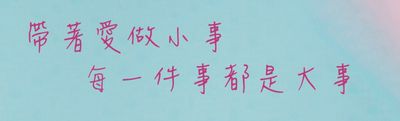 帶著愛做小事
每一件事都是大事